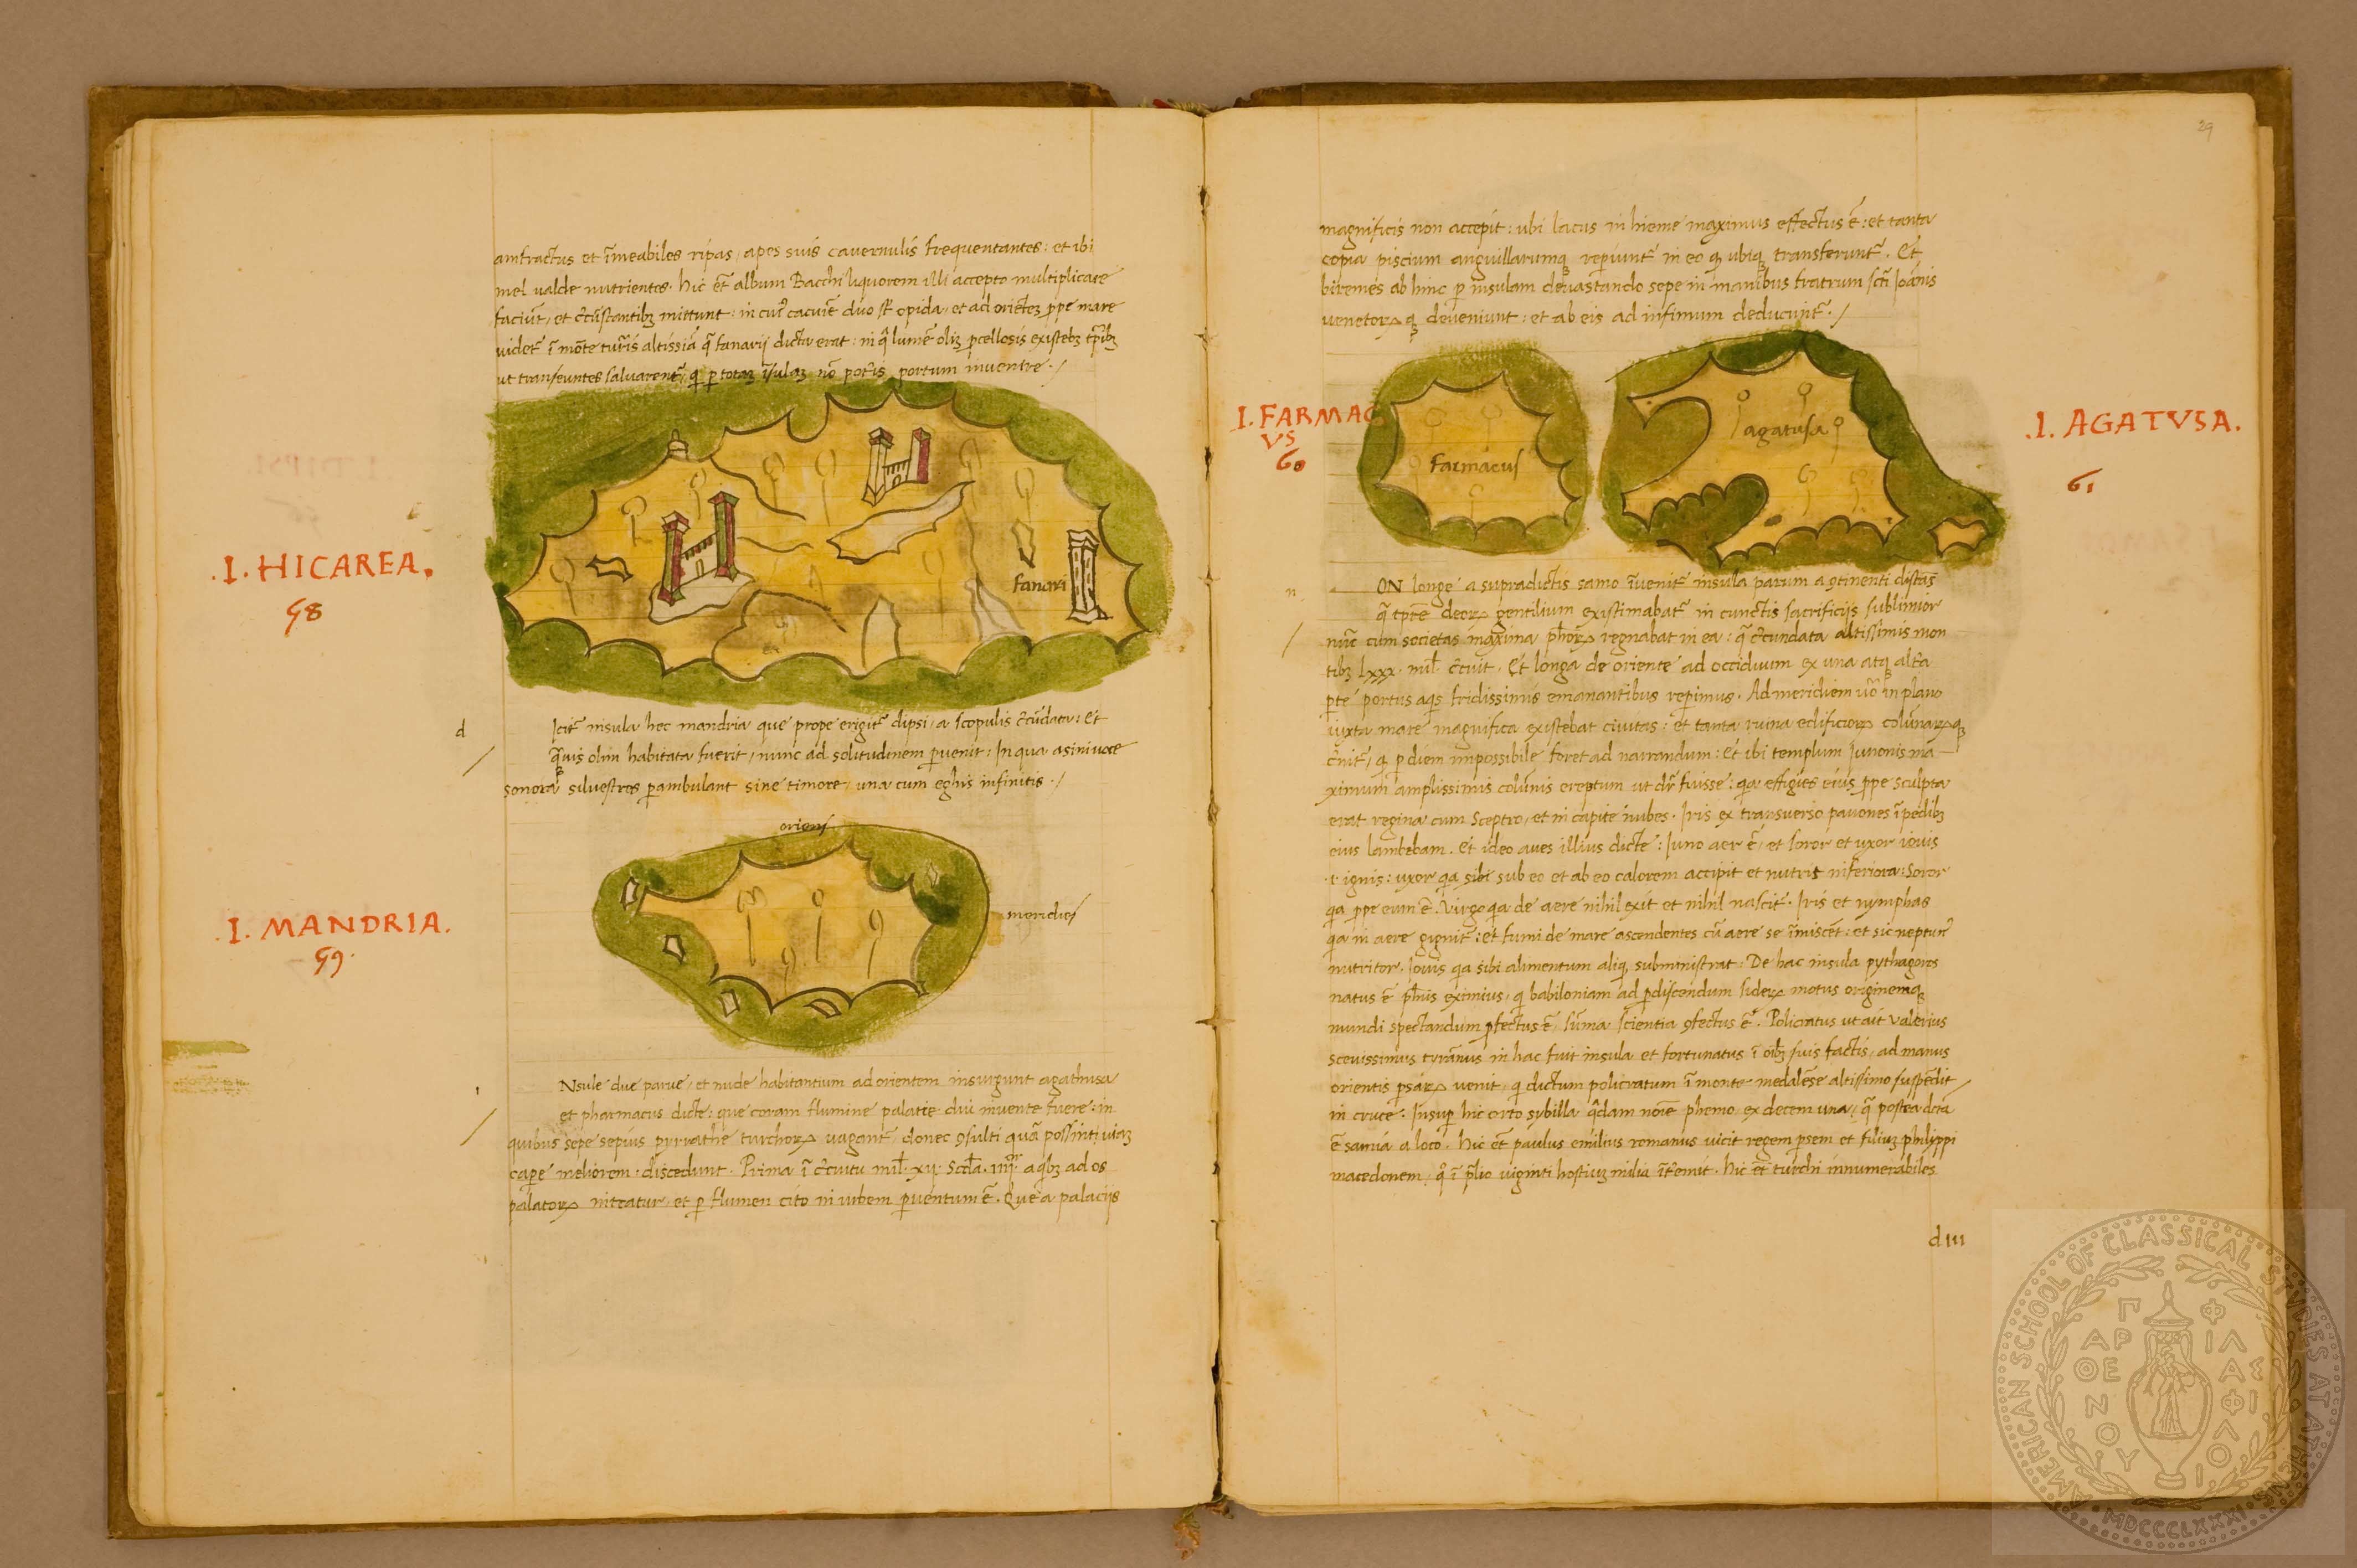 amfractus et īmeabiles ripas, apes suis cavernulis frequentantes: et ibi
mel valde nutrientes. hic et̄ album Bacchi liquorem illi accepto multiplicare
faciūt, et c̄cūstantibꝫ mittunt: in cuiꝰ cacuīe duo st̄ opida, et ad oriētez ꝓpe mare
videt̄ ī mōte turris altissia q̄ fanarij dicta erat: in q̄ lumē oliꝫ ꝓcellosis existēbꝫ tp̄ibꝫ
ut transeuntes salvarent̄, qꝫ ꝑ totaꝫ īsulaꝫ nō potis portum invenire./
.I. HICAREA.
58
fanari
d
Icit̄ insula hec mandria que prope erigit̄ dipsi, a scopulis c̄cūdata: et
q̄vis olim habitata fuerit, nunc ad solitudinem ꝑvenit: In qua asini voce
sonora silvestres ꝑambulant sine timore, una cum eghis infinitis./
.I. MANDRIA.
59.
oriens
meridies
i
Nsule due parve, et nude habitantium ad orientem insurgunt agathusa
et pharmacus dicte: que coram flumine palatie diu invente fuere: in
quibus sepe sepius pyrrathe turchoꝝ vagant̄, donec ꝯsulti quā possint viaꝫ
capere meliorem: discedunt. Prima ī c̄cuitu mil̄. xij. Scd̄a. iiij. a qbꝫ ad os
palatoꝝ niteatur, et ꝑ flumen cito in urbem ꝑventum ē. Que a palacijs
29
magnificis non accepit: ubi lacus in hieme maximus effectus ē: et tanta
copia piscium anguillarumqꝫ reperiunt̄ in eo qꝫ ubiqꝫ transferunt̄. Et
biremes ab hinc ꝑ insulam devastando sepe in manibus fratrum sct̄i Joānis
venetoꝝ qꝫ deveniunt: et ab eis ad infimum deducunt̄./
I. FARMAC
VS
60
farmacus
agatusa
.I. AGATVSA.
61
n
ON longe a supradictis samo īvenit̄ insula parum a ꝯtinenti distās
q̄ tp̄re deoꝝ gentilium existimabat̄ in cunctis sacrificijs sublimior
nūc cum societas maxima ph̄oꝝ regnabat in ea: q̄ c̄cundata altissimis mon
tibꝫ lxxx. mil̄. c̄cuit. Et longa de oriente ad occiduum ex una atqꝫ alt̄a
ꝑte portus aqs fridissimis emanantibus reperimus. Ad meridiem vō in plano
iuxta mare magnifica existebat civitas: et tanta ruina edificioꝝ colūnaꝝqꝫ
c̄nit̄, qꝫ ꝑ diem impossibile foret ad narrandum: Et ibi templum Junonis ma
ximum amplissimis colūnis ereptum ut dr̄ fuisse: qa effigies eius ꝓpe sculpta
erat regina cum sceptro, et in capite nubes. Iris ex transverso pavones ī pedibꝫ
eius lambebam. et ideo aves illius dicte: Juno aer ē, et soror et uxor iovis
.i. ignis: uxor qa sibi sub eo et ab eo calorem accipit et nutrit inferiora: Soror
qa ꝓpe eum ē. Virgo qa de aere nihil exit et nihil nascit̄. Iris et nymphas
qa in aere gignit̄: et fumi de mare ascendentes cū aere se īmiscēt: et sic neptunꝰ
nutritor. Iovis qa sibi alimentum aliqꝫ subministrat. De hac insula pythagoras
natus ē ph̄us eximius, q babiloniam ad ꝑdiscendum sideꝝ motus originemqꝫ
mundi spectandum ꝓfectus ē, sūma scientia ꝯfectus ē. Policratus ut ait valerius
scevissimus tyrānus in hac fuit insula et fortunatus ī oībꝫ suis factis, ad manus
orientis ꝑsaꝝ venit, q dictum policratum ī monte medalēse altissimo suspēdit
in cruce. Insuꝑ hic orto sybilla q̄dam noīe phemo, ex decem una, q̄ postea dcā
ē samia a loco. hic et̄ paulus emilius romanus vicit regem ꝑsem et filiuꝫ philippi
macedonem, q ī ꝓlio viginti hostiuꝫ milia īt̄emit. hic et̄ turchi innumerabiles
d iii
AMERICAN SCHOOL OF CLASSICAL STUDIES AT ATHENS
MDCCCLXXXI
ΠΑΡΘΕΝΟΥ
ΦΙΛΑΣ ΦΙΛΟΙ